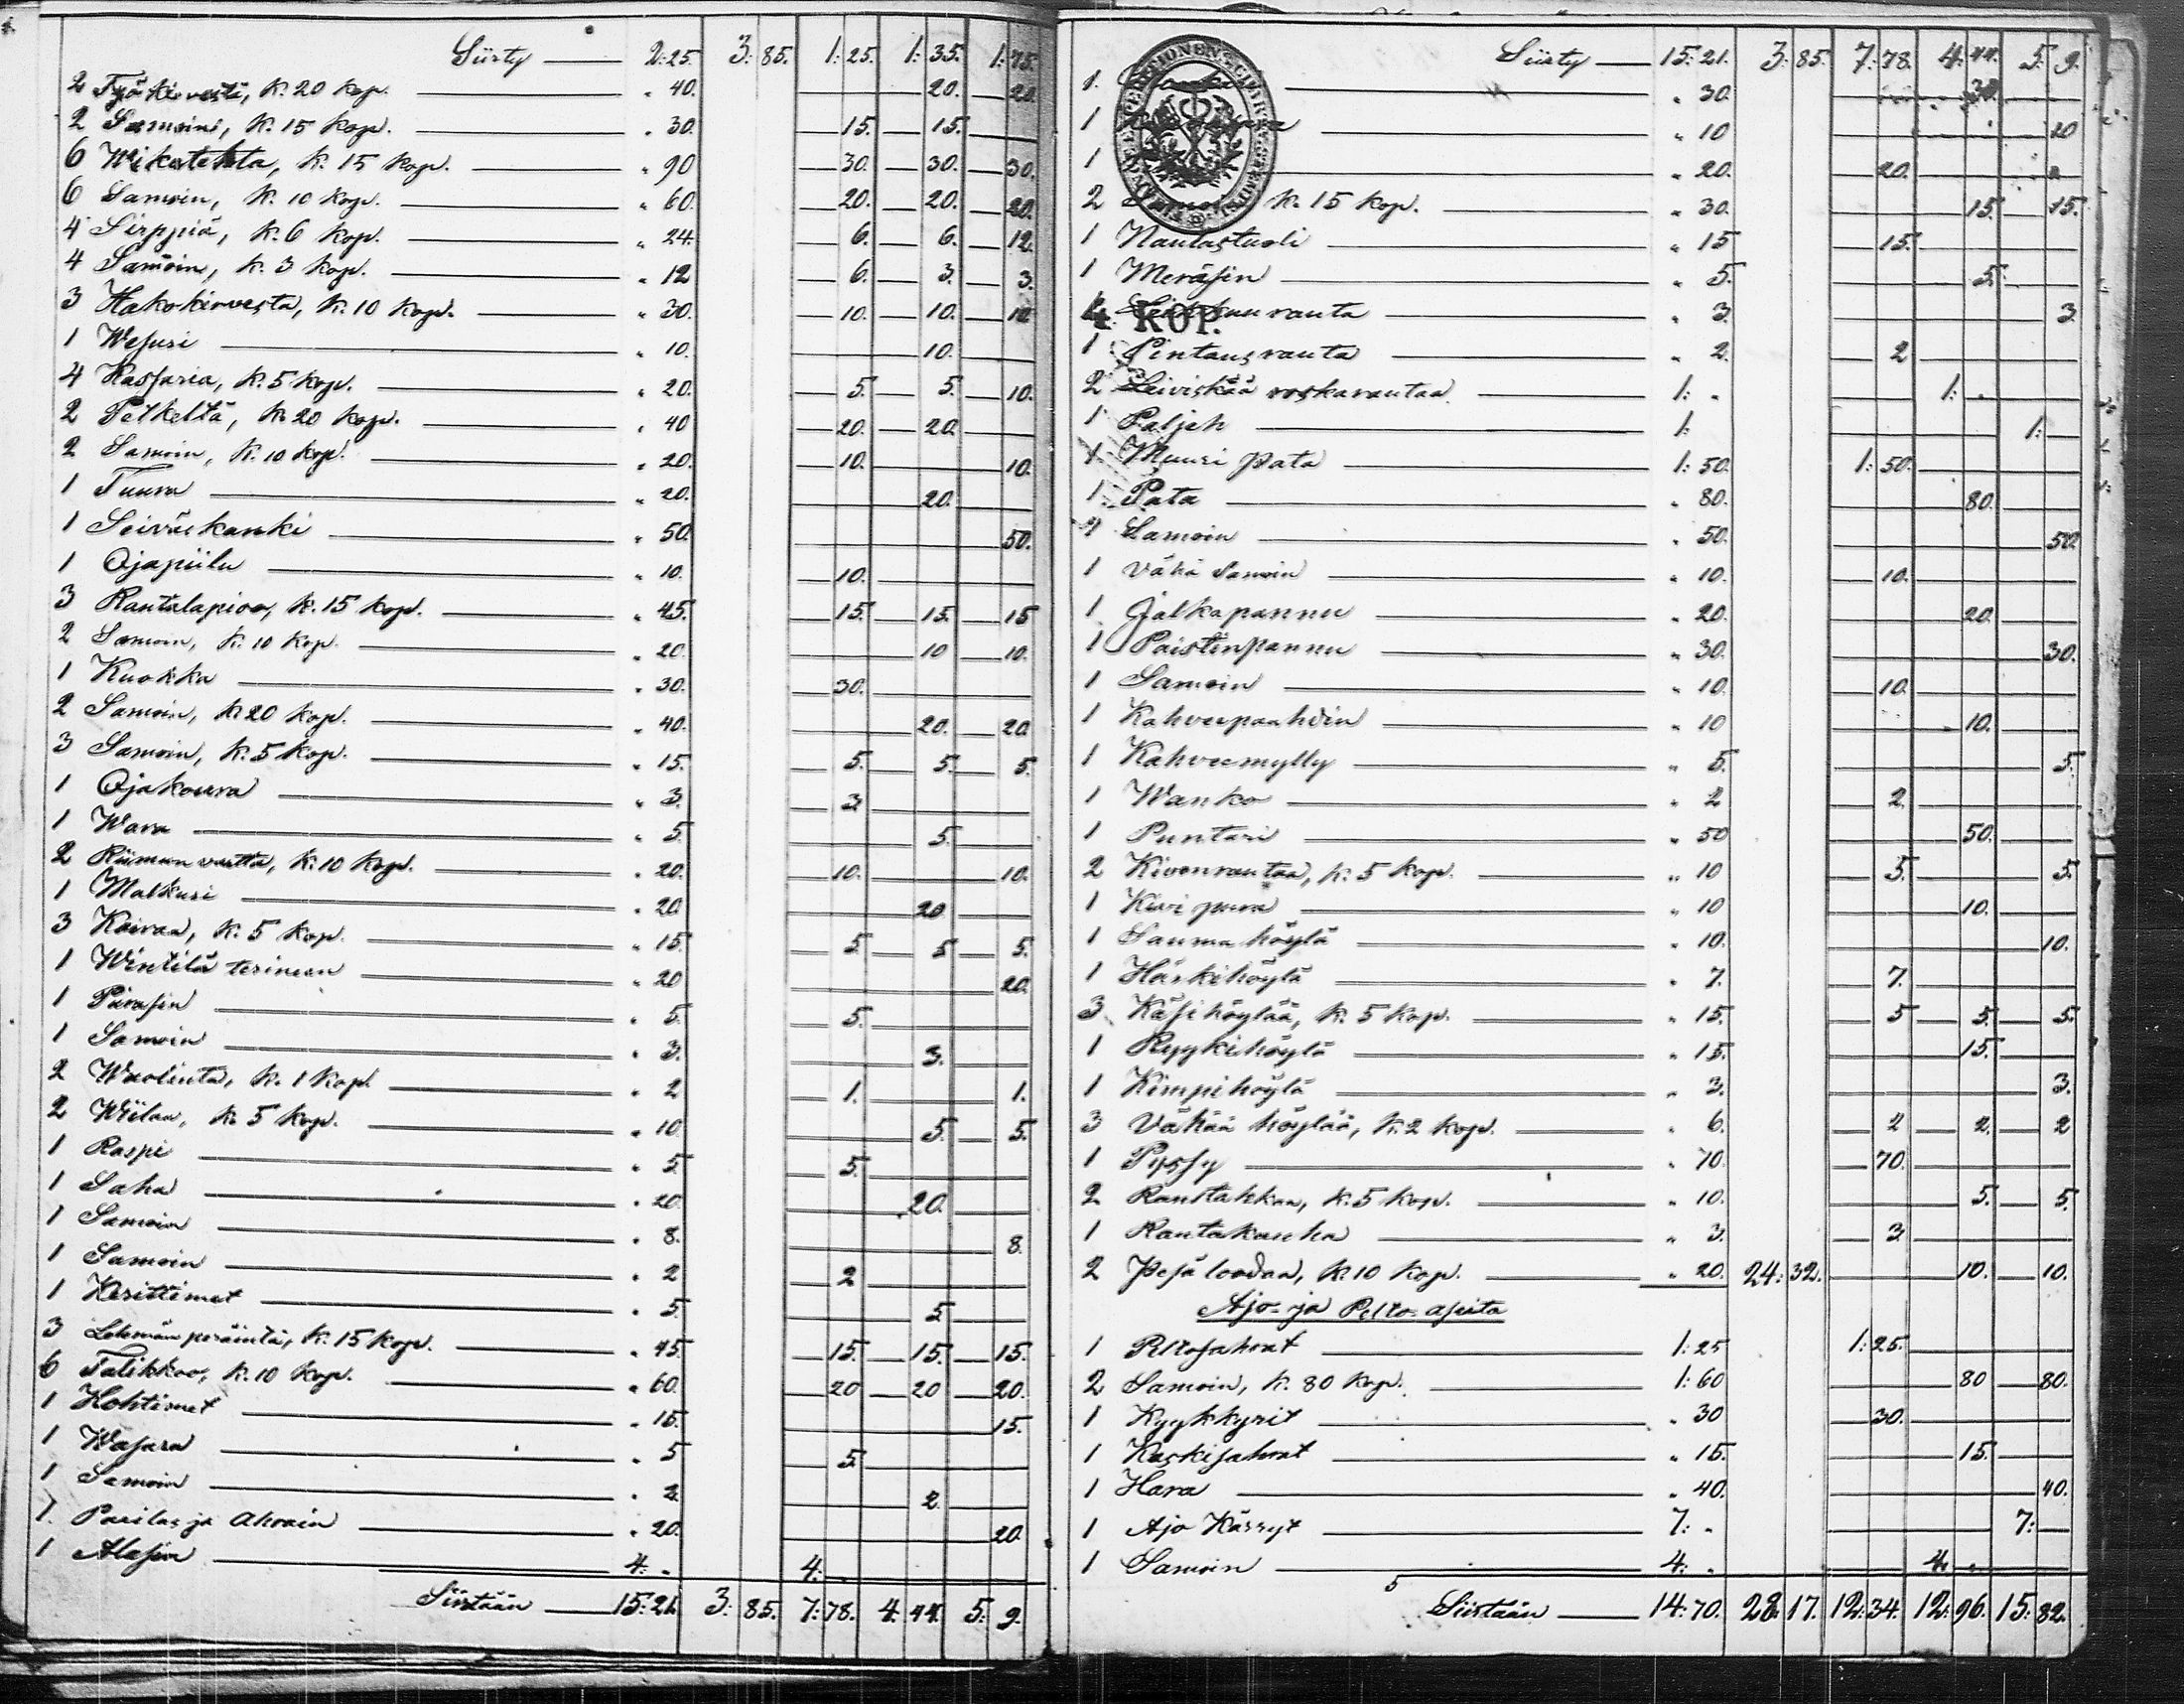 Siirty 2:25. 3:85. 1:25. 1:35. 1:75.
2 Työkirvestä, k. 20 kop. " 40. 20. 20.
2 Samoin, k. 15 kop. " 30. 15. 15.
6 Wikatehta, k. 15 kop. " 90 30. 30. 30.
6 Samoin, k. 10 kop. " 60. 20. 20. 20.
4 Sirppiä, k. 6 kop. " 24. 6. 6. 12.
4 Samoin, k. 3 kop. " 12 6. 3. 3.
3 Hakokirvesta, k. 10 kop. " 30. 10. 10. 10
1 Wesuri " 10. 10.
4 Kassaria, k. 5 kop. " 20. 5. 5. 10.
2 Petkeltä, k. 20 kop. " 40 20. 20.
2 Samoin, k. 10 kop. " 20. 10. 10.
1 Tuura " 20. 20.
1 Seiväskanki " 50. 50.
1 Ojapiilu " 10. 10.
3 Rautalapioo, k. 15 kop. " 45. 15. 15. 15
2 Samoin, k. 10 kop. " 20. 10 10.
1 Kuokka " 30. 30.
2 Samoin, k. 20 kop. " 40. 20. 20
3 Samoin, k. 5 kop. " 15. 5. 5. 5.
1 Ojakoura " 3. 3
1 Wara " 5. 5.
2 k. 10 kop. " 20. 10. 10.
1 Malkusi " 20. 20
3 Kairaa, k. 5 kop. " 15. 5 5 5.
1 Wintilä terineen " 20 20.
1 Piirasin " 5. 5.
1 Samoin " 3. 3.
2 Wuolinta, k. 1 kop. " 2 1. 1.
2 Wiilaa, k. 5 kop. " 10. 5. 5.
1 Raspi " 5 5.
1 Saha " 20. 20.
1 Samoin " 8. 8.
1 Samoin " 2 2
1 Kerittimet " 5. 5
3 Lehmän peräintä, k. 15 kop. " 45. 15. 15. 15.
6 Talikkoo, k. 10 kop. " 60. 20 20 20.
1 Hohtimet " 15. 15.
1 Wasara " 5 5
1 Samoin " 2 2
1 Parilas ja ahrain " 20. 20.
1 Alasin 4: " 4:
Siirtään 15:21. 3:85. 7:78. 4:44. 5:9.
Siirty 15:21. 3:85. 7:78. 4:44. 5:9.
1 " 30. 30.
1 " 10 10
1 " 20. 20.
2 Samoin k. 15 kop. " 30. 15. 15.
1 Naulastuoli " 15 15.
1 Meräsin " 5. 5.
4 KOP.
1 rauta " 3. 3.
1 Pintausrauta " 2. 2
2 Leiviskää roskarautaa 1: " 1: "
1 Paljeh 1: 1:
1 Muuri pata 1:50. 1:50.
1 Pata " 80. 80.
1 Samoin " 50. 50.
1 Vähä Samoin " 10. 10.
1 Jalkapannu " 20. 20.
1 Paistinpannu " 30. 30.
1 Samoin " 10. 10.
1 Kahveepaahdin " 10 10.
1 Kahveemylly " 5. 5.
1 Wanko " 2 2.
1 Puntari " 50 50.
2 Kivenrautaa, k. 5 kop. " 10 5. 5
1 Kivi pura " 10 10.
1 Sauma höylä " 10. 10.
1 Härkihöylä " 7. 7.
3 Käsihöylää, k. 5 kop. " 15. 5 5. 5.
1 Ryykihöylä " 15. 15.
1 Kimpihöylä " 3. 3.
3 Vähää höylää, k. 2 kop. " 6. 2 2. 2
1 Pyssy " 70. 70.
2 Rautahkaa, k. 5 kop. " 10. 5. 5.
1 Rautakauha " 3. 3
2 Pesä loodaa, k. 10 kop. " 20. 24:32. 10. 10.
Ajo- ja Pelto- aseita
1 Peltosahrat 1:25 1:25.
2 Samoin, k. 80 kop. 1:60 80 80.
1 Kyykkyrit " 30 30.
1 Kaskisahrat " 15. 15.
1 Hara " 40. 40.
1 Ajo Kärryt 7: " 7:
1 Samoin 4: " 4: "
Siirtään 14:70. 28:17. 12:34. 12:96. 15:82.